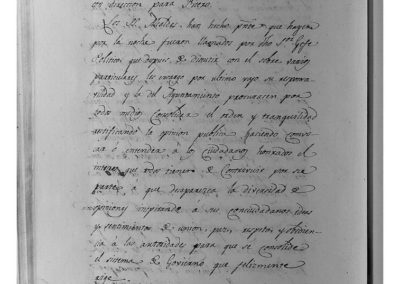 en direccion para
Los S.S. Alcaldes, han hecho pñte que hayer
por la noche fueron llamados por dho Sor Gefe
Politico que despues de discutir con el sobre varios
particulares les encargo por ultimo vajo su responsa-
vilidad y la del Ayuntamiento procurasen por
todos medios consolidar el orden y tranquilidad
rectificando la opinion publica haciendo conoser
a los ciudadanos honrados el
interes que todos tienen de contribuir por su
parte a que desaparezca la diversidad de
opiniones inspirando a sus conciudadanos ideas
y sentimientos de union, paz, respeto y obedien-
cia à las autoridades para que se consolide
el sistema de Govierno que felizmente
rige